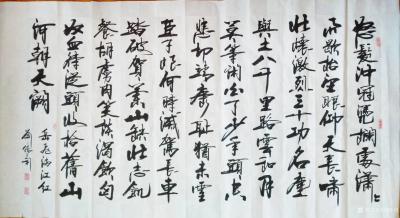 怒髮沖冠憑欄處瀟々
雨歇抬望眼仰天長嘯
壯懷激烈三十功名塵
與土八千里路雲和月
莫等閑白了少年頭空
悲切靖康恥猶未雪
臣子恨何時滅駕長車
踏破賀蘭山缺壯志飢
餐胡虜肉笑談渴飲匈
奴血待從頭收拾舊山
河朝天闕
岳飛滿江紅